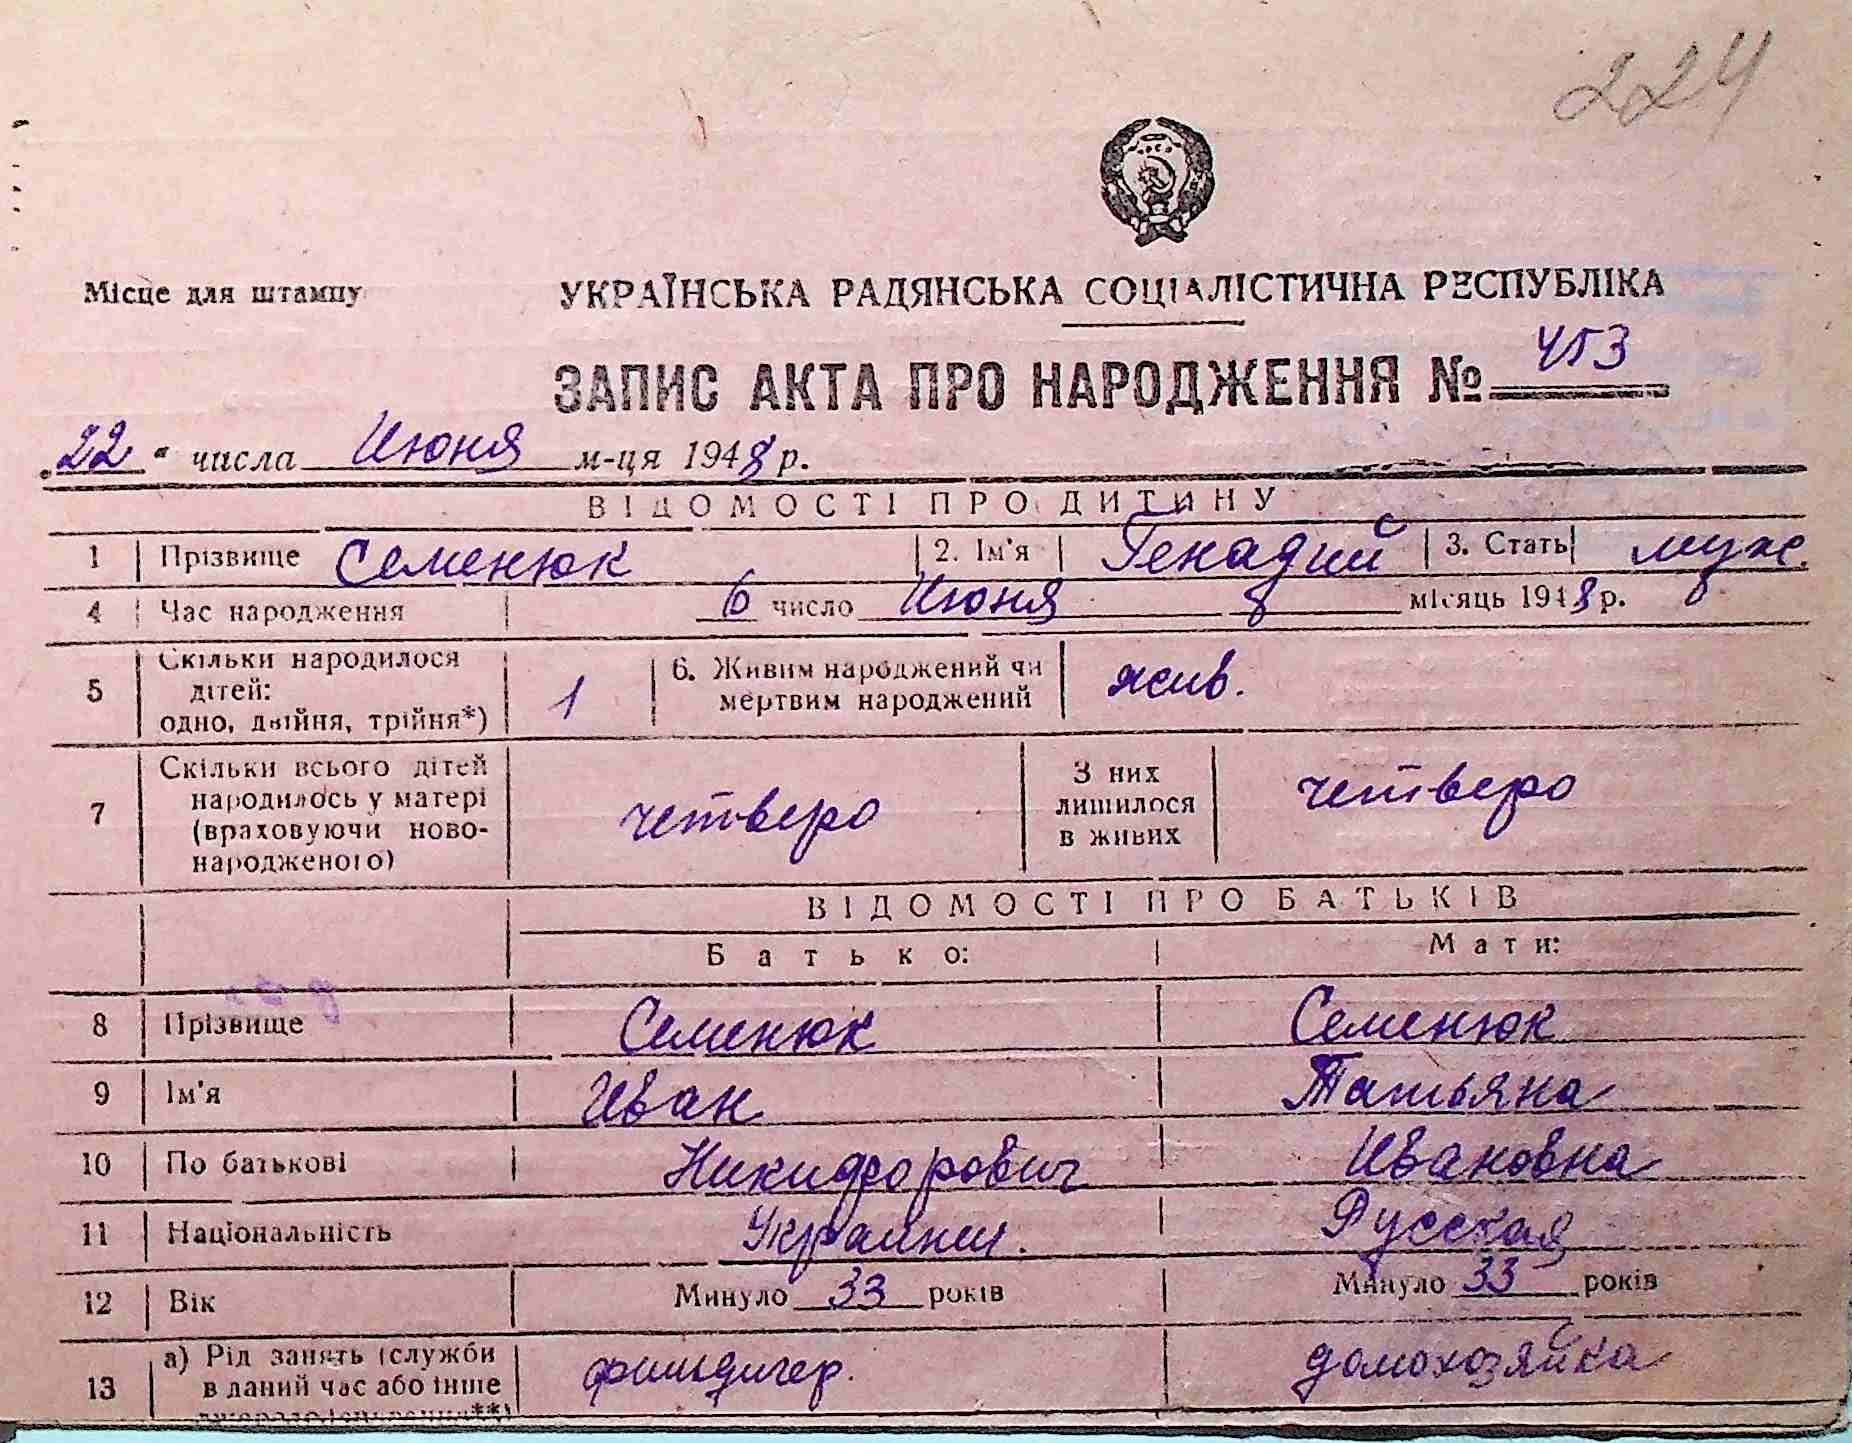 224
Місце для штампу
УКРАЇНСЬКА РАДЯНСЬКА СОЦІАЛІСТИЧНА РЕСПУБЛІКА
ЗАПИС АКТА ПРО НАРОДЖЕННЯ № 453
„22“ числа Июня м-ця 1948 р.
ВІДОМОСТІ ПРО ДИТИНУ
1 Прізвище Семенюк 2. Ім'я Генадий 3. Стать муж.
4 Час народження 6 число Июня місяць 1948 р.
5 Скільки народилося дітей: одно, двійня, трійня*) 1 6. Живим народжений чи мертвим народжений жив.
7 Скільки всього дітей народилось у матері (враховуючи новонародженого) четверо З них лишилося в живих четверо
ВІДОМОСТІ ПРО БАТЬКІВ
Батько: Мати:
8 Прізвище Семенюк Семенюк
9 Ім'я Иван Татьяна
10 По батькові Никифорович Ивановна
11 Національність Украинец. Русская
12 Вік Минуло 33 років Минуло 33 років
13 а) Рід занять (служби в даний час або інше домохозяйка